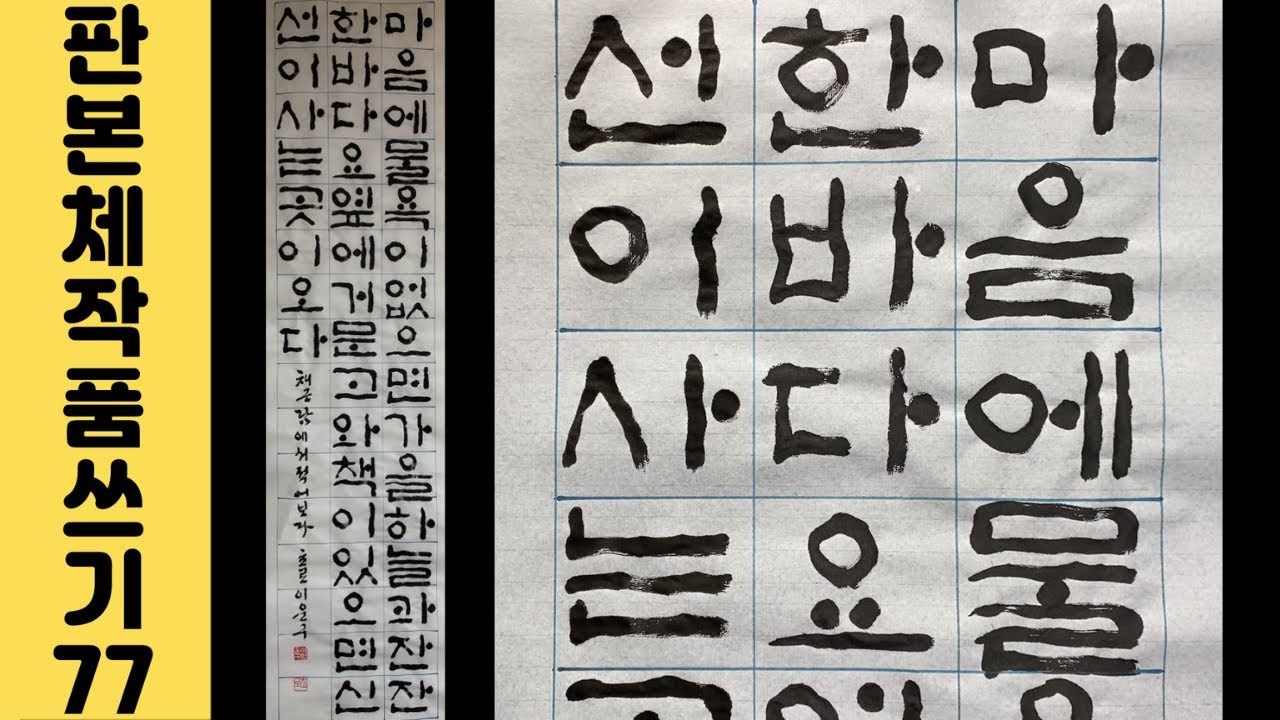 판본체작품쓰기77
마음에물욕이없으면가을하늘과잔잔
한바다요옆에거문고와책이있으면신
선이사는곳이오다
채근담에서
마음에물
한바다요
선이사는